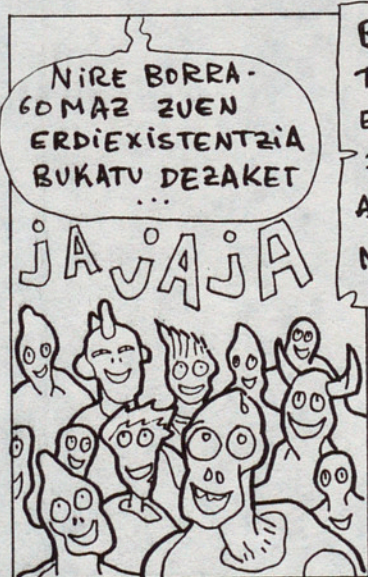 NiRE BORRA-
GOMAZ ZUEN
ERDiEXiSTENTZiA
BUKATU DEZAKET
...
jA jAjA